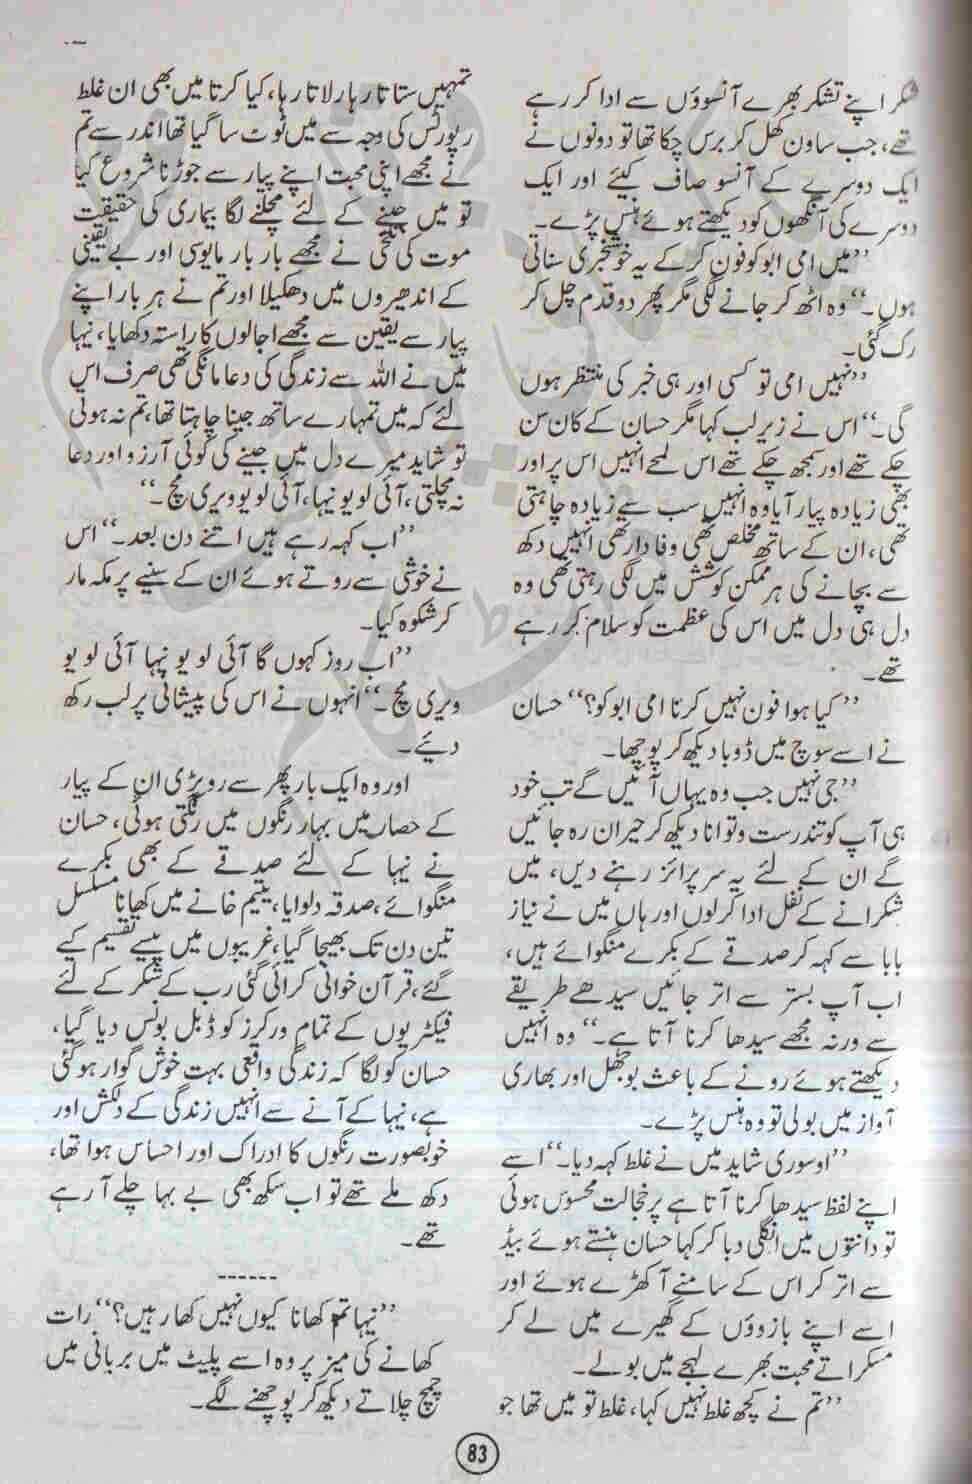 شکر اپنے تشکر بھرے آنسوؤں سے ادا کر رہے
تھے، جب ساون کھل کر برس چکا تھا تو دونوں نے
ایک دوسرے کے آنسو صاف کیئے اور ایک
دوسرے کی آنکھوں کو دیکھتے ہوئے ہنس پڑے۔
’’میں امی ابو کو فون کر کے یہ خوشخبری سناتی
ہوں۔‘‘ وہ اٹھ کر جانے لگی مگر پھر دو قدم چل کر
رک گئی۔
’’نہیں امی تو کسی اور ہی خبر کی منتظر ہوں
گی۔‘‘ اس نے زیر لب کہا مگر حسان کے کان سن
چکے تھے اور سمجھ چکے تھے اس لمحے انہیں اس پر اور
بھی زیادہ پیار آیا وہ انہیں سب سے زیادہ چاہتی
تھی، ان کے ساتھ مخلص تھی وفادار تھی انہیں دکھ
سے بچانے کی ہر ممکن کوشش میں لگی رہتی تھی وہ
دل ہی دل میں اس کی عظمت کو سلام کر رہے
تھے۔
’’کیا ہوا فون نہیں کرنا امی ابو کو؟‘‘ حسان
نے اسے سوچ میں ڈوبا دیکھ کر پوچھا۔
’’جی نہیں جب وہ یہاں آئیں گے تب خود
ہی آپ کو تندرست و توانا دیکھ کر حیران رہ جائیں
گے ان کے لئے یہ سرپرائز رہنے دیں، میں
شکرانے کے نفل ادا کر لوں اور ہاں میں نے نیاز
بابا سے کہہ کر صدقے کے بکرے منگوائے ہیں،
اب آپ بستر سے اتر جائیں سیدھے طریقے
سے ورنہ مجھے سیدھا کرنا آتا ہے۔‘‘ وہ انہیں
دیکھتے ہوئے رونے کے باعث بوجھل اور بھاری
آواز میں بولی تو وہ ہنس پڑے۔
’’او سوری شاید میں نے غلط کہہ دیا۔‘‘ اسے
اپنے لفظ سیدھا کرنا آتا ہے پر خجالت محسوس ہوئی
تو دانتوں میں انگلی دبا کر کہا حسان ہنستے ہوئے بیڈ
سے اتر کر اس کے سامنے آ کھڑے ہوئے اور
اسے اپنے بازوؤں کے گھیرے میں لے کر
مسکراتے محبت بھرے لہجے میں بولے۔
’’تم نے کچھ غلط نہیں کہا، غلط تو میں تھا جو
تمہیں ستاتا رہا رلاتا رہا، کیا کرتا میں بھی ان غلط
رپورٹس کی وجہ سے میں ٹوٹ سا گیا تھا اندر سے تم
نے مجھے اپنی محبت اپنے پیار سے جوڑنا شروع کیا
تو میں جینے کے لئے مچلنے لگا بیماری کی حقیقت
موت کی تلخی نے مجھے بار بار مایوسی اور بے یقینی
کے اندھیروں میں دھکیلا اور تم نے ہر بار اپنے
پیار سے یقین سے مجھے اجالوں کا راستہ دکھایا، نیہا
میں نے اللہ سے زندگی کی دعا مانگی تھی صرف اس
لئے کہ میں تمہارے ساتھ جینا چاہتا تھا، تم نہ ہوتی
تو شاید میرے دل میں جینے کی کوئی آرزو اور دعا
نہ مچلتی، آئی لو یو نیہا، آئی لو یو ویری مچ۔‘‘
’’اب کہہ رہے ہیں اتنے دن بعد۔‘‘ اس
نے خوشی سے روتے ہوئے ان کے سینے پر مکہ مار
کر شکوہ کیا۔
’’اب روز کہوں گا آئی لو یو نیہا آئی لو یو
ویری مچ۔‘‘ انہوں نے اس کی پیشانی پر لب رکھ
دیئے۔
اور وہ ایک بار پھر سے رو پڑی ان کے پیار
کے حصار میں بہار رنگوں میں رنگتی ہوئی، حسان
نے نیہا کے لئے صدقے کے بھی بکرے
منگوائے، صدقہ دلوایا، یتیم خانے میں کھانا مسلسل
تین دن تک بھیجا گیا، غریبوں میں پیسے تقسیم کیے
گئے، قرآن خوانی کرائی گئی رب کے شکر کے لئے
فیکٹریوں کے تمام ورکرز کو ڈبل بونس دیا گیا،
حسان کو لگا کہ زندگی واقعی بہت خوش گوار ہو گئی
ہے، نیہا کے آنے سے انہیں زندگی کے دلکش اور
خوبصورت رنگوں کا ادراک اور احساس ہوا تھا،
دکھ ملے تھے تو اب سکھ بھی بے بہا چلے آ رہے
تھے۔
------
’’نیہا تم کھانا کیوں نہیں کھا رہیں؟‘‘ رات
کھانے کی میز پر وہ اسے پلیٹ میں بریانی میں
چمچ چلاتے دیکھ کر پوچھنے لگے۔
83